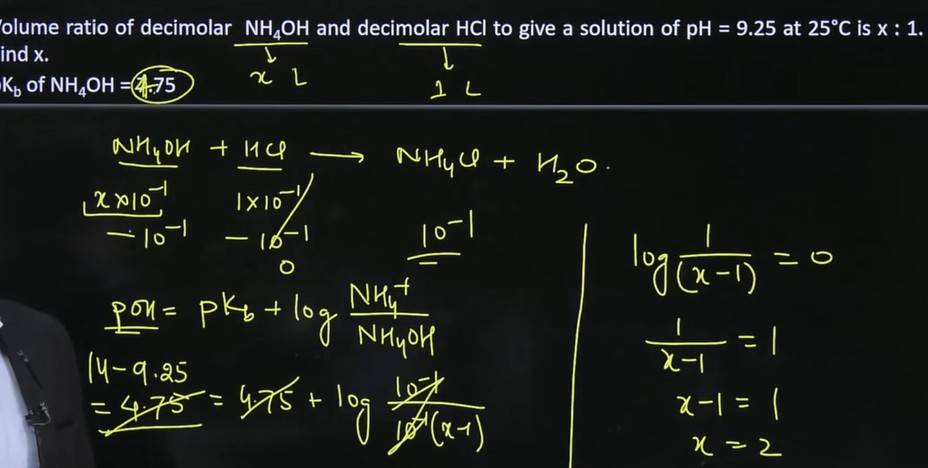 olume ratio of decimolar NH₄OH and decimolar HCl to give a solution of pH = 9.25 at 25°C is x : 1.
ind x.
K_b of NH₄OH = 4.75
x L
1 L
NH₄OH + HCl ⟶ NH₄Cl + H₂O.
x×10⁻¹ 1×10⁻¹
−10⁻¹ −10⁻¹ 10⁻¹
0
pOH = pK_b + log NH₄⁺/NH₄OH
14−9.25
= 4.75 = 4.75 + log 10⁻¹/10⁻¹(x−1)
log 1/(x−1) = 0
1/x−1 = 1
x−1 = 1
x = 2